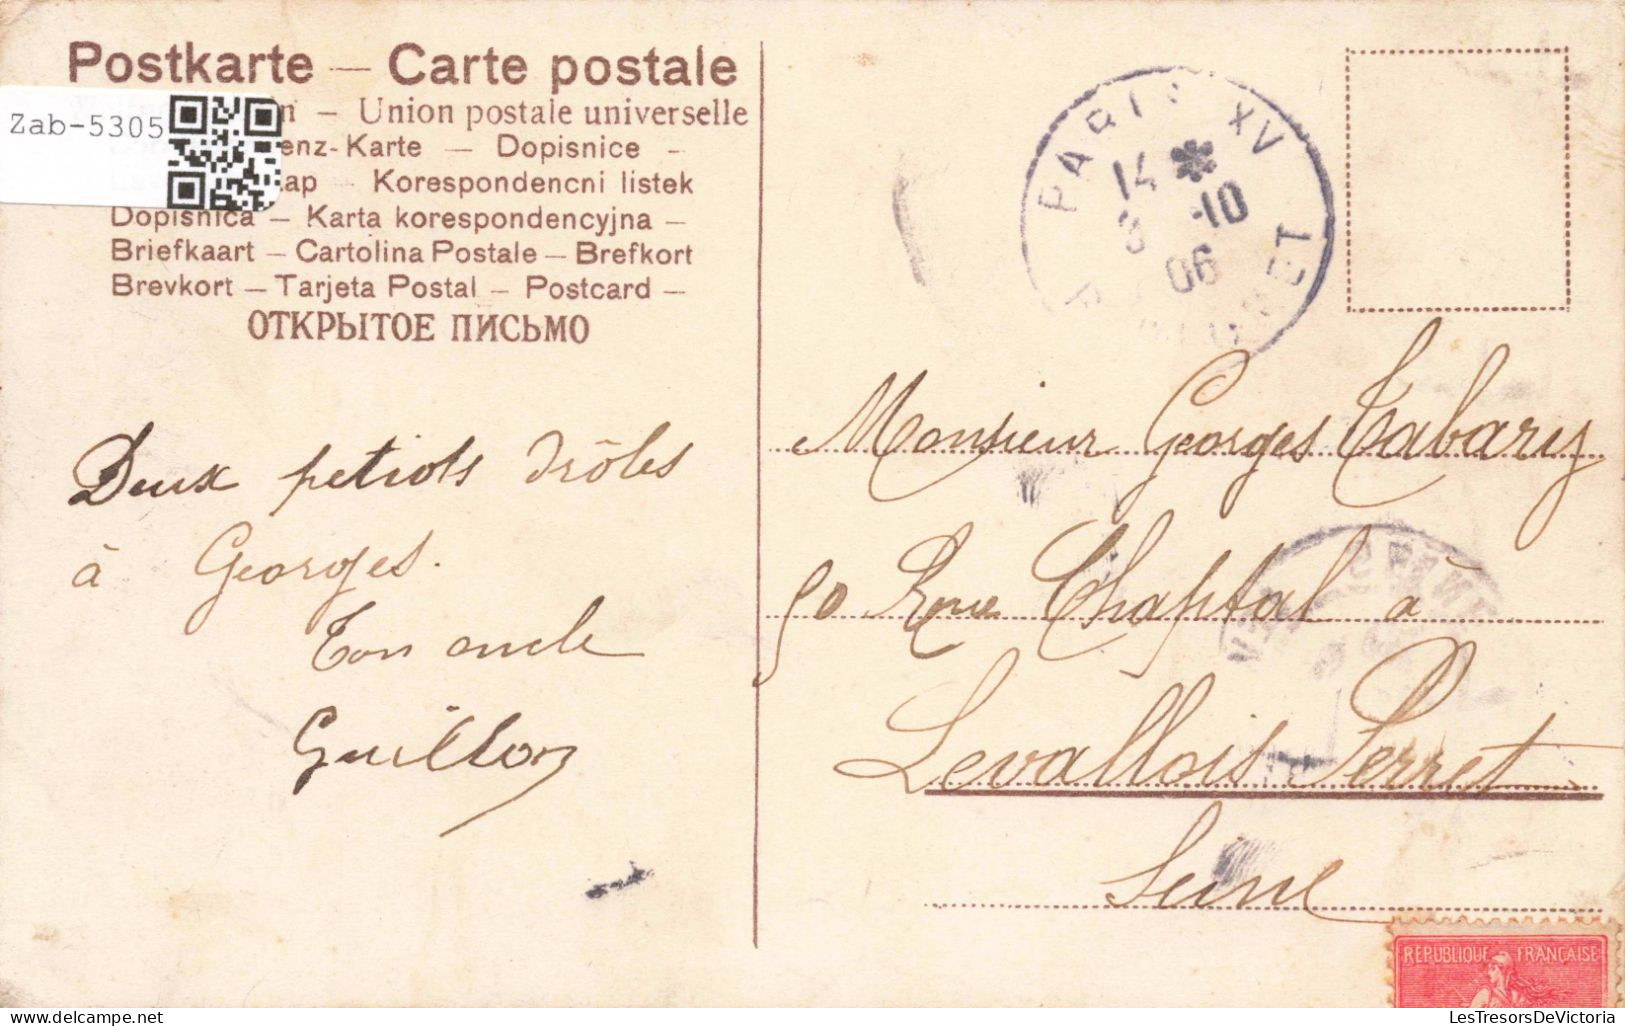 Postkarte — Carte postale
Zab-5305
– Union postale universelle
enz-Karte — Dopisnice –
ap – Korespondencni listek
Dopisnica – Karta korespondencyjna –
Briefkaart – Cartolina Postale – Brefkort
Brevkort – Tarjeta Postal – Postcard –
ОТКРЫТОЕ ПИСЬМО
PARIS XV
14
3 -10
06
Deux petiots drôles
à Georges.
Ton oncle
Guillon
Monsieur Georges Tabary
90 Rue Chaptal à
Levallois Perret
Seine
REPUBLIQUE FRANÇAISE
delcampe.net
LesTresorsDeVictoria